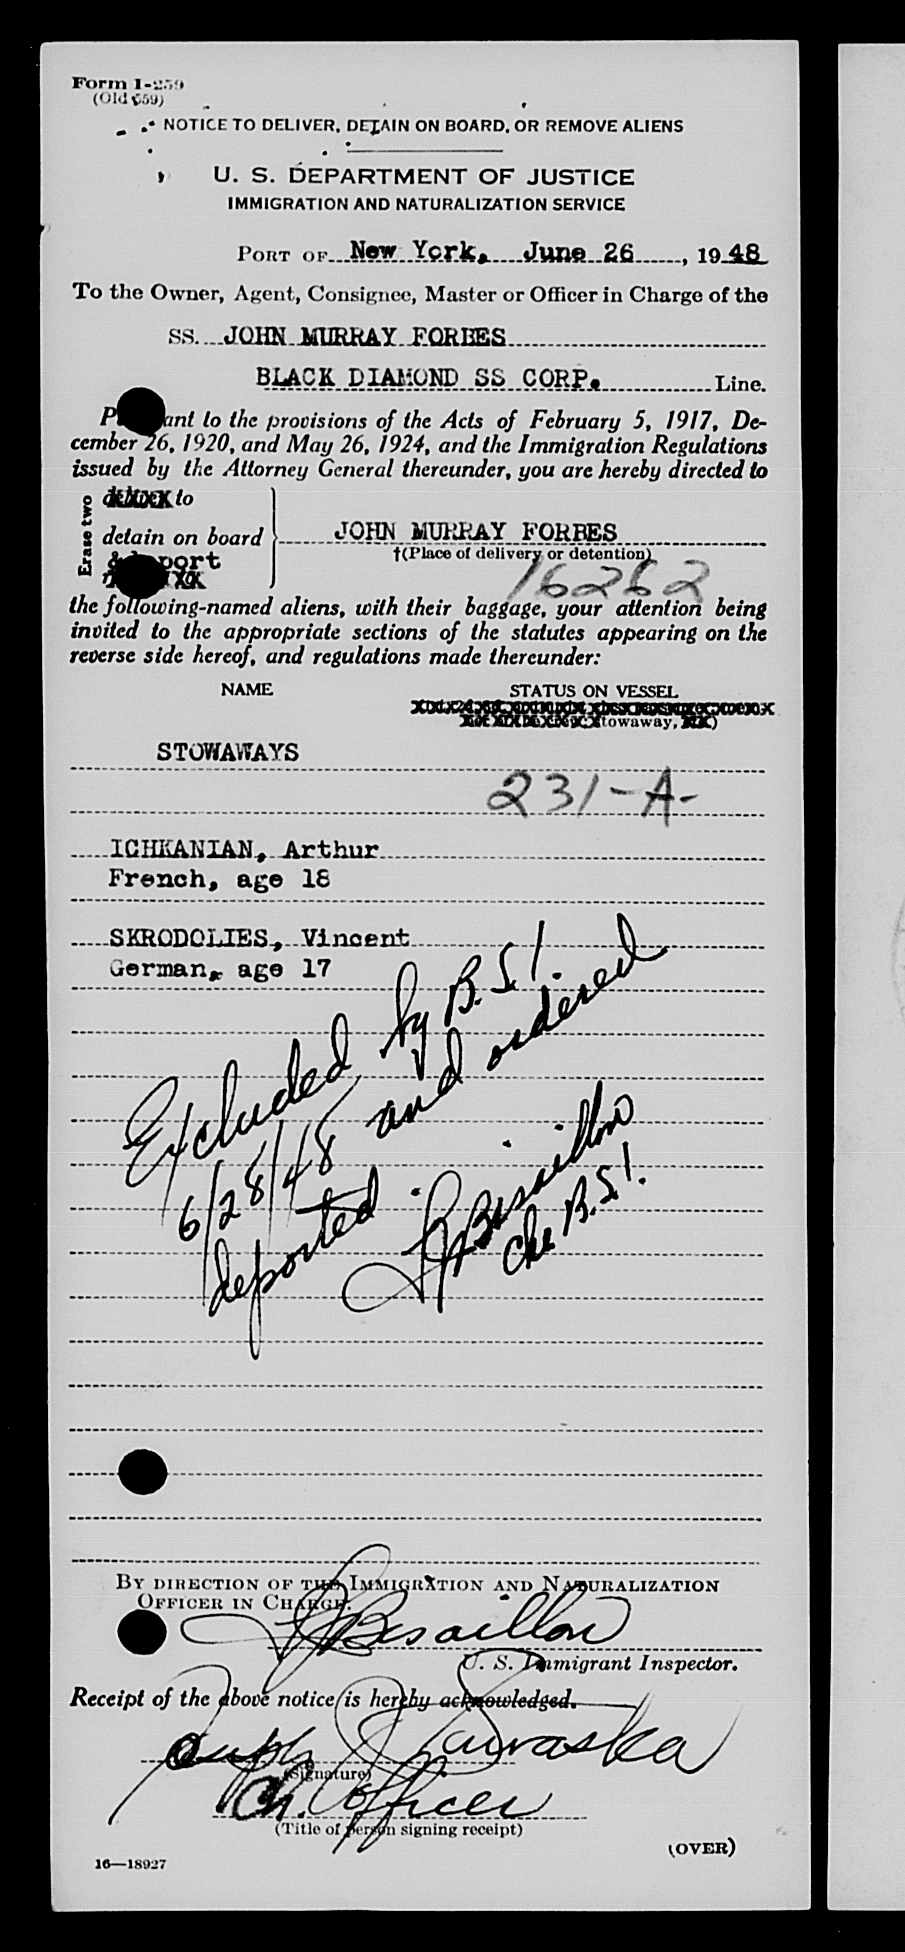 Form I-259
(Old 659)
NOTICE TO DELIVER, DETAIN ON BOARD, OR REMOVE ALIENS
U. S. DEPARTMENT OF JUSTICE
IMMIGRATION AND NATURALIZATION SERVICE
PORT OF New York, June 26, 1948
To the Owner, Agent, Consignee, Master or Officer in Charge of the
SS. JOHN MURRAY FORBES
BLACK DIAMOND SS CORP. Line.
ant to the provisions of the Acts of February 5, 1917, De-
cember 26, 1920, and May 26, 1924, and the Immigration Regulations
issued by the Attorney General thereunder, you are hereby directed to
Erase two
to
detain on board
JOHN MURRAY FORBES
†(Place of delivery or detention)
& port
16262
the following-named aliens, with their baggage, your attention being
invited to the appropriate sections of the statutes appearing on the
reverse side hereof, and regulations made thereunder:
NAME STATUS ON VESSEL
towaway,
STOWAWAYS
231-A-
ICHKANIAN, Arthur
French, age 18
SKRODOLIES, Vincent
German, age 17
Excluded by B.S.I.
6/28/48 and ordered
deported.
Bissaillon
Che B.S.I.
BY DIRECTION OF THE IMMIGRATION AND NATURALIZATION
OFFICER IN CHARGE.
U. S. Immigrant Inspector.
Receipt of the above notice is hereby acknowledged.
Joseph
(Signature)
Ch. Officer
(Title of person signing receipt)
(OVER)
16—18927